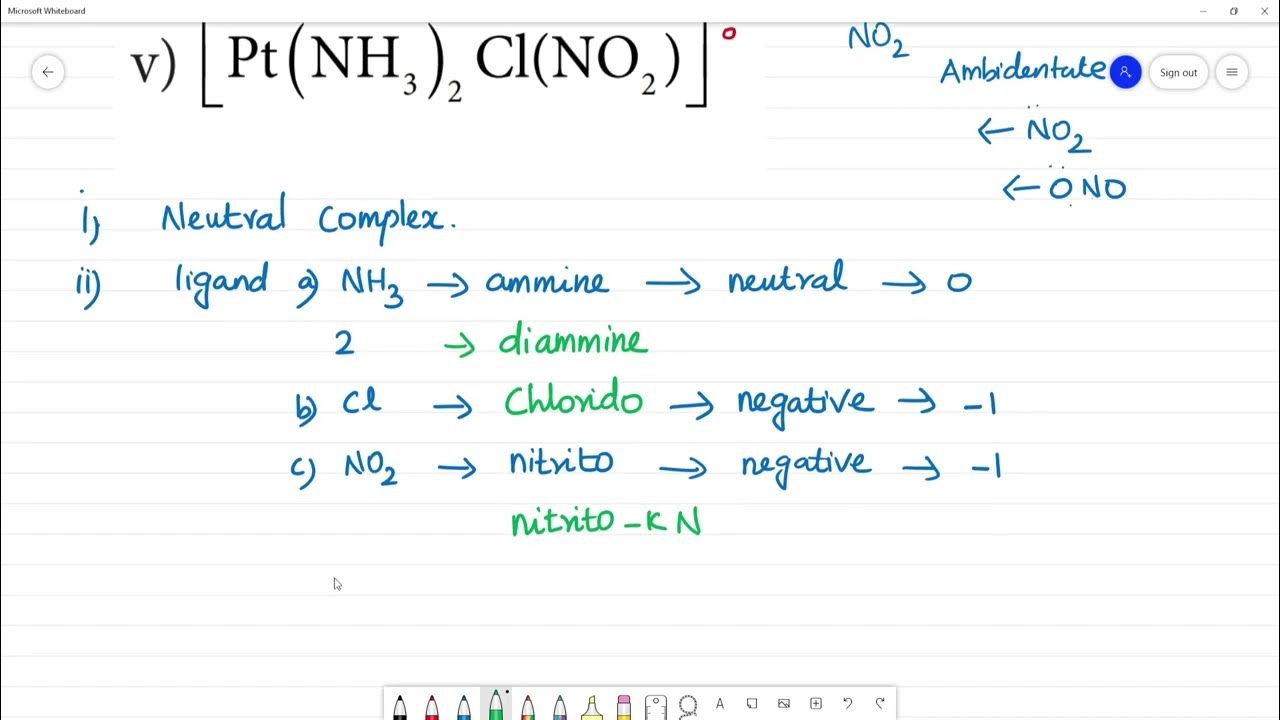 Microsoft Whiteboard
v) [Pt(NH₃)₂ Cl(NO₂)]°
NO₂
Ambidentate
Sign out
← N̈O₂
← ÖNO
i) Neutral Complex.
ii) ligand a) NH₃ → ammine → neutral → 0
2 → diammine
b) Cl → Chlorido → negative → -1
c) NO₂ → nitrito → negative → -1
nitrito -κ N
A